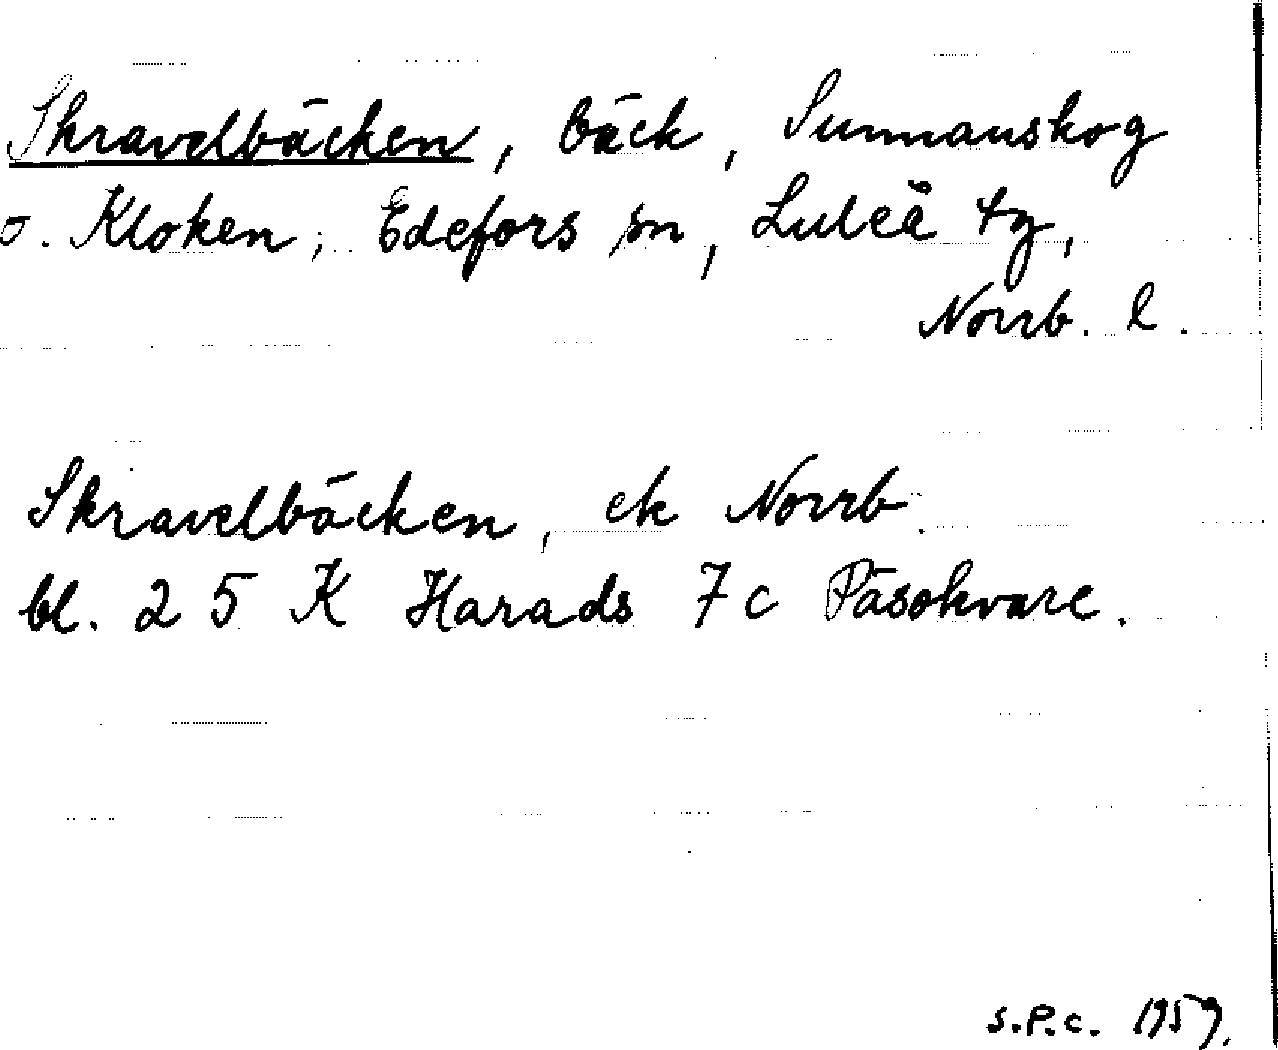 Skravelbäcken, bäck, Sunnanskog
o. Kloken, Edefors sn, Luleå tg,
Norrb. l.
Skravelbäcken, ek Norrb.
bl. 25 K Harads 7c Påsokvare.
S.P.C. 1959.